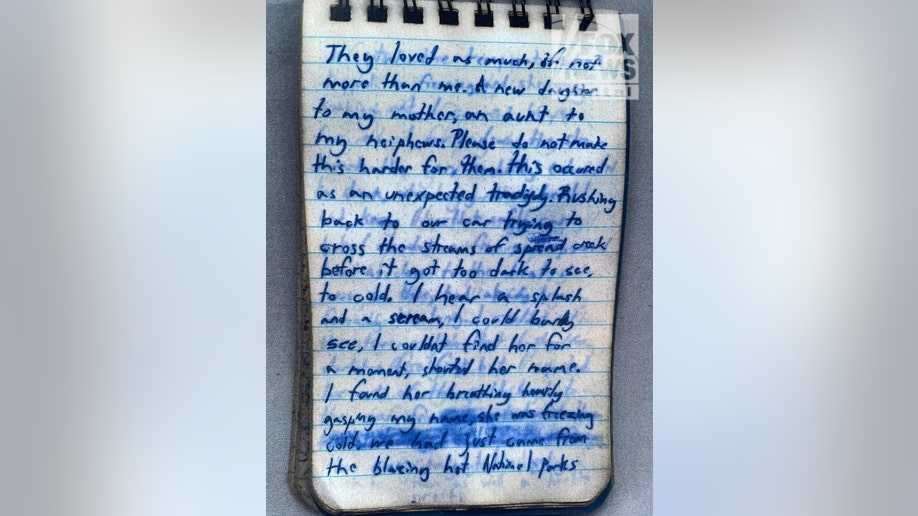 They loved as much, if not
more than me. A new daughter
to my mother, an aunt to
my neiphews. Please do not make
this harder for them. this occured
as an unexpected tradgidy. Rushing
back to our car trying to
cross the streams of spread creek
before it got too dark to see,
to cold. I hear a splash
and a scream, I could barely
see, I couldnt find her for
a moment, shouted her name.
I found her breathing heavily
gasping my name, she was freezing
cold. we had just came from
the blazing hot National parks
FOX
NEWS